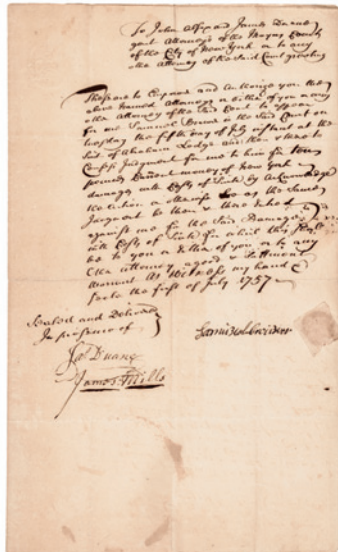 To John Alsop and James Duane
Gent Attorneys of the Mayors Court
of the City of New York or to any
other Attorney of the Said Court greeting
These are to Empower and Authorize you the
above named Attorneys or either of you or any
other Attorney of the Said Court to appear
for me Samuel in the Said Court on
tuesday the fifth day of July instant at the
Suit of Abraham Lodge and then & there to
Confess Judgment for me to him for
pounds Current money of New York
damages with Costs of Suite by Acknowledging
the action or otherwise as the Same
Judgment to be then & there
against me for the Said Damages
with Costs of Suite for which this Shall
be to you or Either of you or to any
Other Attorney a good & Sufficient
Warrant As Witness my hand &
Seale the first of July 1757
Sealed and Delivered
In presence of
Samuel
Jas Duane
James Mills